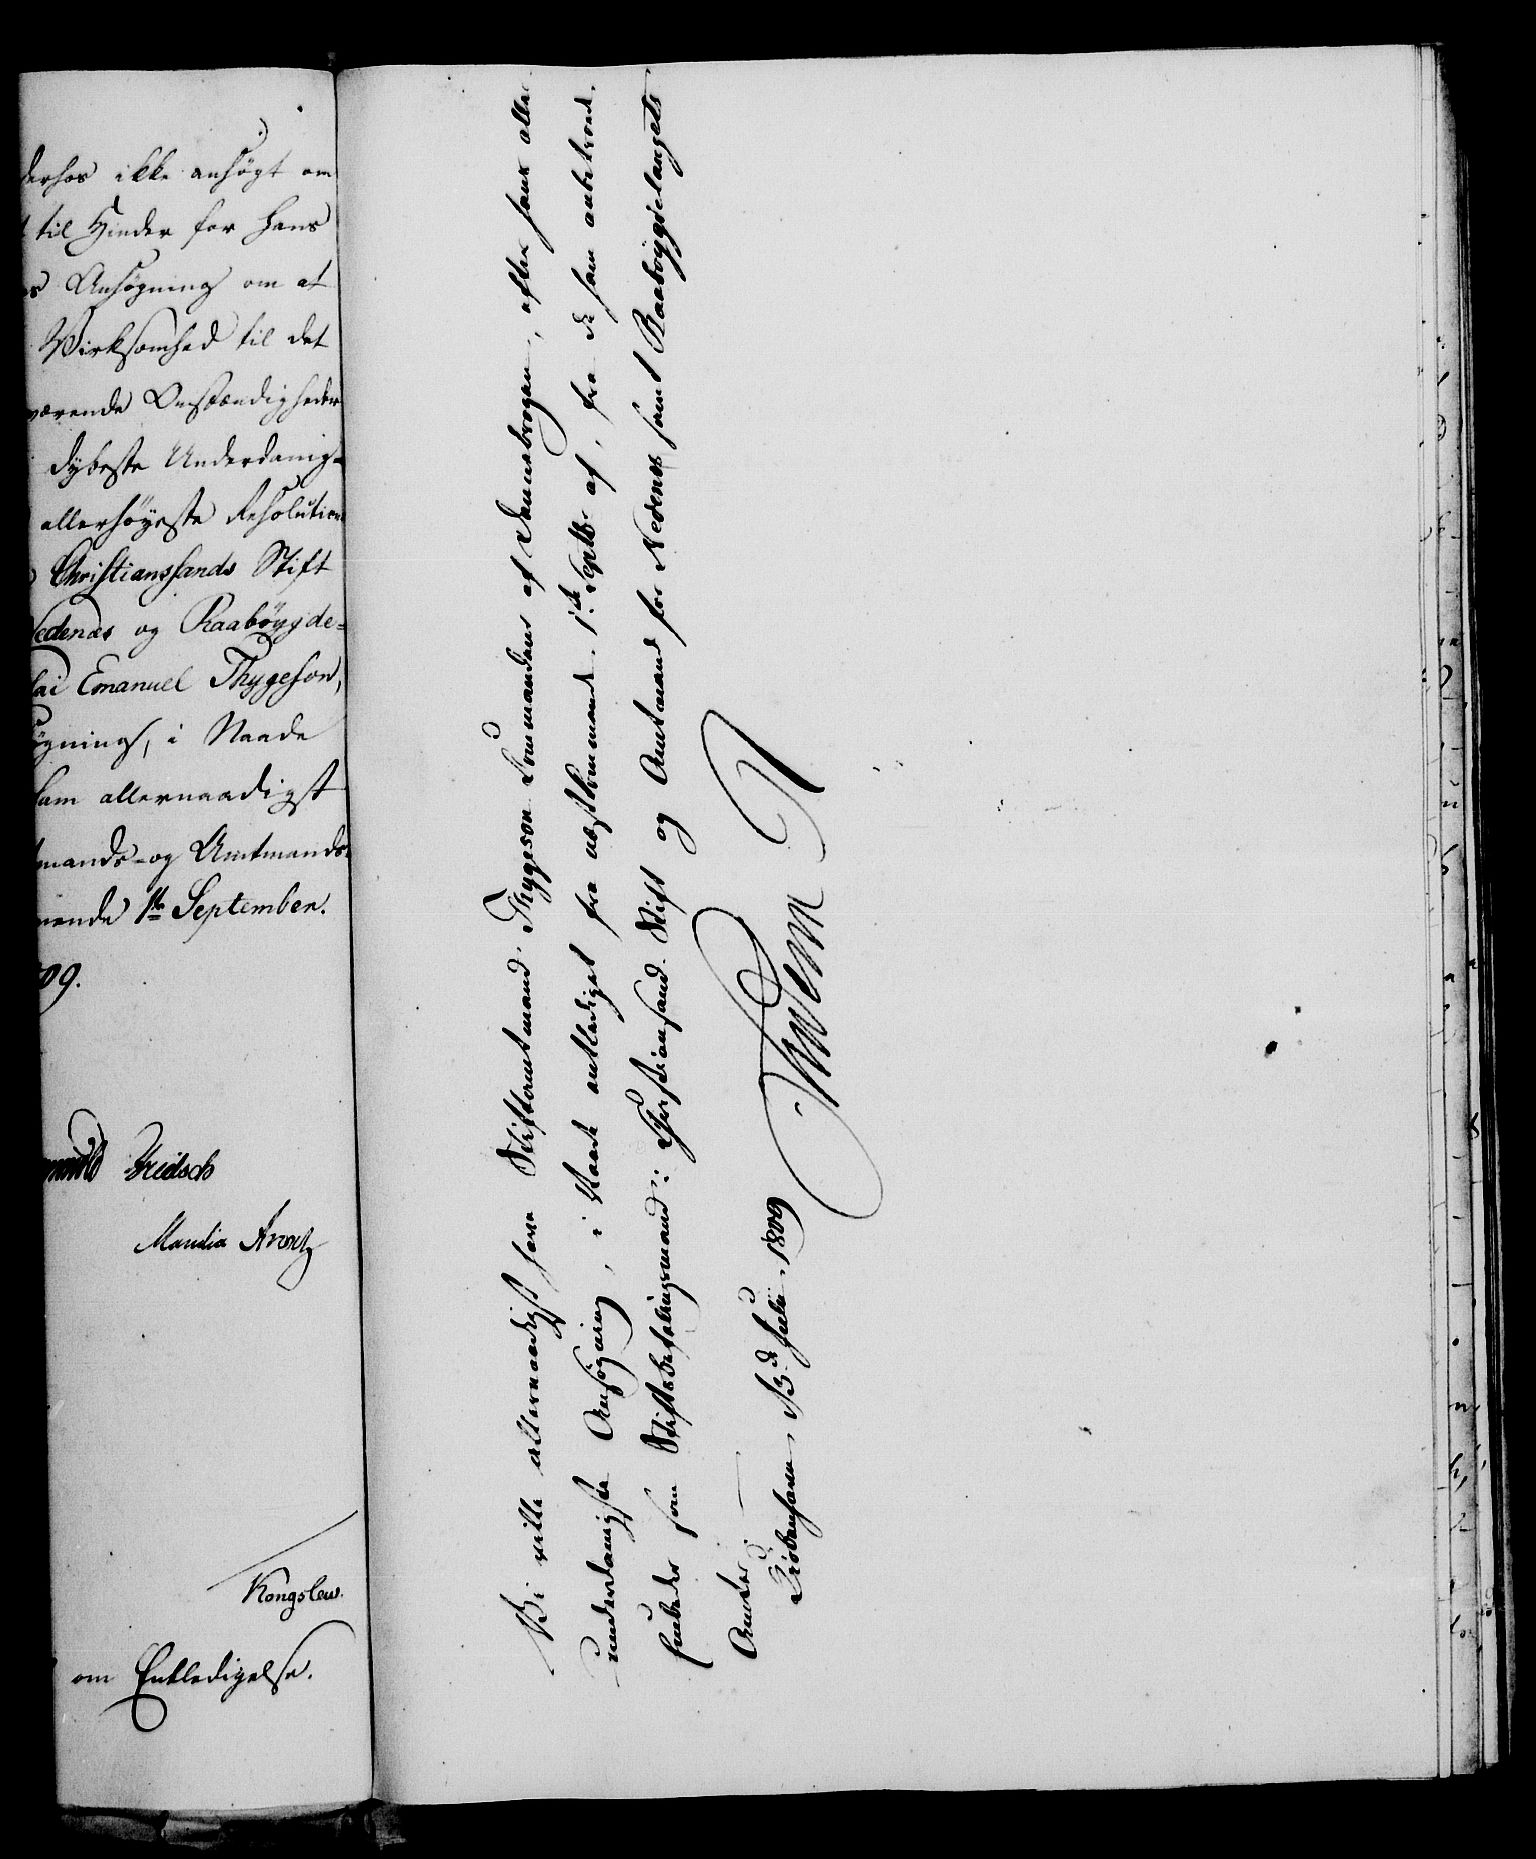 derhos ikke ansøgt om
til Hinder for hans
Ansøgning om at
Virksomhed til det
værende Omstændigheder
dybeste Underdanig-
allerhøyeste Resolution
Christianssands Stift
Nedenæs og Raabøygde-
lai Emanuel Thygeson,
øgning, i Naade
ham allernaadigst
mands- og Amtmands-
mende 1ste September.
09.
Knudsen
Kongslew.
om Entledigelse.
Vi ville allernaadigst have Stiftamtmand Thygeson Commandeur af Dannebrogen, efter hans aller-
underdanigste Ansøgning, i Naade entlediget fra næstkommende 1ste Septbr. af, fra de ham anbetroede
Embeder som Stiftsbefalingsmand i Christiansand Stift og Amtmand for Nedenes samt Raaböygdelaugets
Amter.
Kiöbenhavn, d. 3de Julii 1809
Frederik R